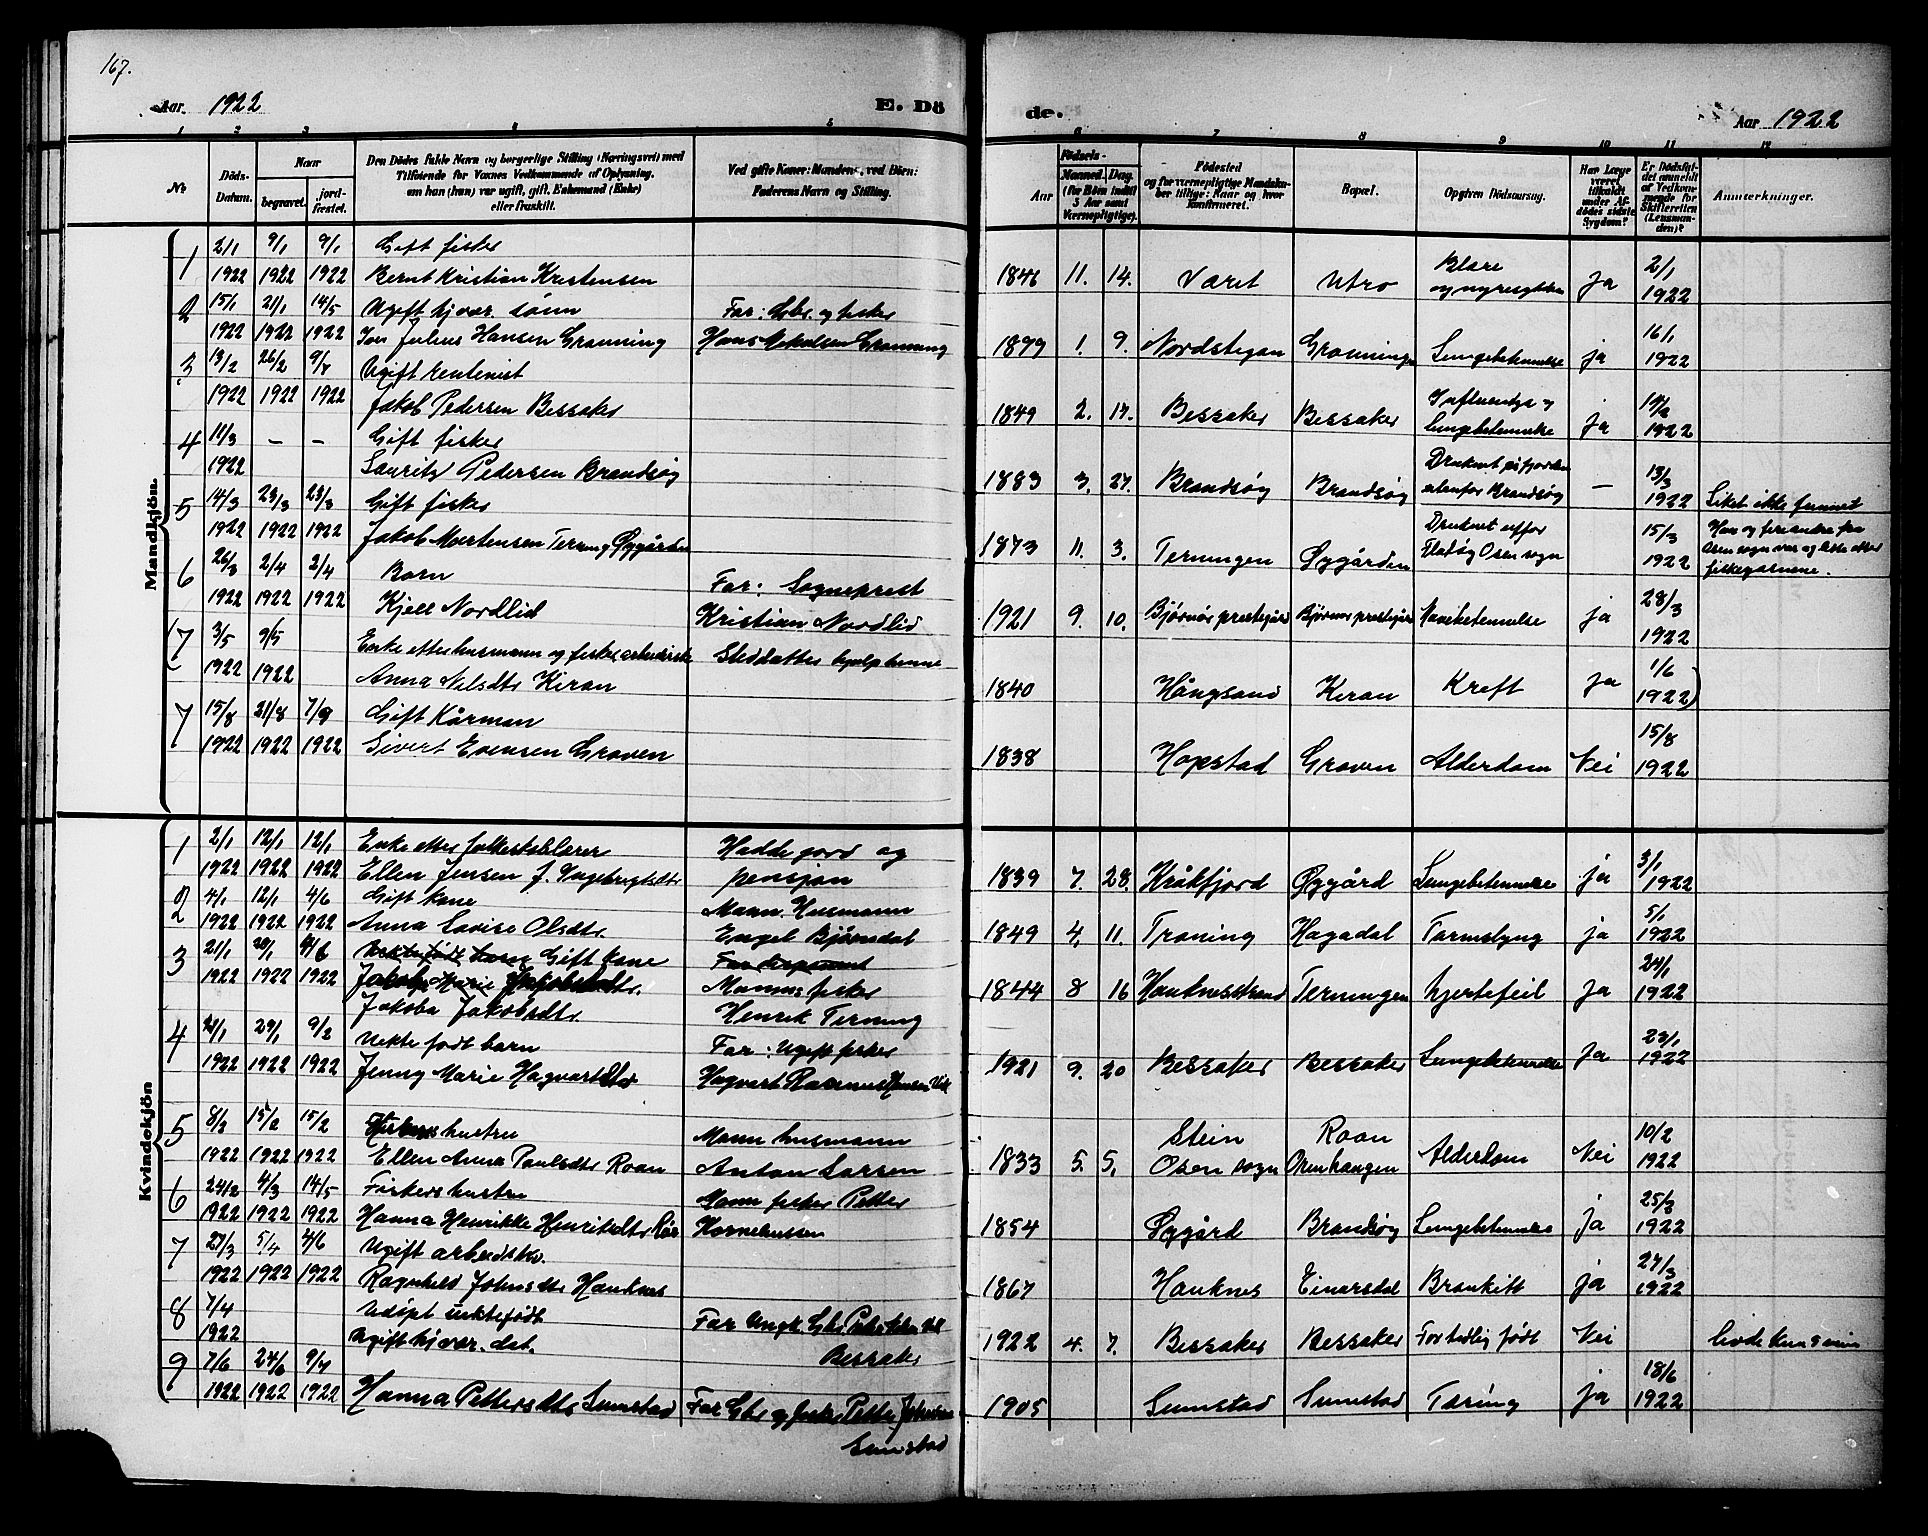 167.
Aar. 1922
E. Dö
de.
Aar 1922
1 2 3 4 5 6 7 8 9 10 11 12
No
Döds-Datum.
Naar
begravet.
jordfæstet.
Den Dödes fulde Navn og borgerlige Stilling (Næringsvei) med
Tilföiende for Voxnes Vedkommende af Oplysning,
om han (hun) var ugift, gift, Enkemand (Enke)
eller fraskilt.
Ved gifte Koner: Mandens, ved Börn:
Faderens Navn og Stilling.
Födsels-
Aar
Maaned. Dag.
(for Börn indtil
5 Aar samt
Værnepligtige).
Födested
og for værnepligtige Mandskaber tillige: Naar og hvor
konfirmeret.
Bopæl.
Opgiven Dödsaarsag.
Har Læge
været
tilkaldt
under Afdödes sidste
Sygdom?
Er Dödsfaldet anmeldt
af Vedkommende for
Skifteretten
(Lensmanden)?
Anmærkninger.
Mandkjön.
1 2/1 9/1 9/1 Gift fisker
1922 1922 1922 Bernt Kristian Kristensen
1846 11. 14. Været Utro Blære og nyresykdom Ja 2/1 1922
2 15/1 21/1 14/5 Ugift hj.vær. sønn Far: Gbr. og fisker
1922 1922 1922 Jon Julius Hansen Grønning Hans Nikolsen Grønning
1899 1. 9. Nordstegan Grønningen Lungebetennelse ja 16/1 1922
3 13/2 26/2 9/4 Ugift rentenist
1922 1922 1922 Jakob Pedersen Bessaker
1849 2. 17. Bessaker Bessaker Influentsa og Lungebetennelse Ja 14/2 1922
4 11/3 – – Gift fisker
1922 Lauritz Pedersen Brandsøy
1883 3. 27. Brandsøy Brandsøy Druknet på fjorden utenfor Brandsøy – 13/3 1922 Liket ikke funnet
5 14/3 23/3 23/3 Gift fisker
1922 1922 1922 Jakob Mortensen Terning Øygården
1873 11. 3. Terningen Øygården Druknet utfor Osen sogn 15/3 1922 Han og fra Osen sogn var og fiskegarnene.
6 26/3 2/4 2/4 Barn Far: Sogneprest
1922 1922 1922 Kjell Nordlid Kristian Nordlid
1921 9. 10. Bjørnør prestegård Bjørnør prestegård betennelse ja 28/3 1922
(7 3/5 9/5 Enke etter husmann og fisker
1922 1922 Anna Nilsdtr Kiran
1840 Hångsand Kiran Kreft Ja 1/6 1922)
7 15/8 21/8 7/9 Gift Kårman
1922 1922 1922 Sivert Evensen Graven
1838 Hopstad Graven Alderdom Nei 15/8 1922
Kvindekjön
1 2/1 12/1 12/1 Enke etter folkeskolelærer Hadde jord og
1922 1922 1922 Ellen Jensen f. Ingebrigtsdtr pensjon
1839 7. 28. Kråkfjord Øygård Lungebetennelse ja 3/1 1922
2 4/1 12/1 4/6 Gift kone Mann. Husmann
1922 1922 1922 Anna Lovise Olsdtr. Engel Bjørnsdal
1849 4. 11. Troning Hagadal Tarmslyng ja 5/1 1922
3 21/1 4/6 Gift kone
1922 1922 1922 Mannen fisker
Jakoba Jakobsdtr. Henrik Terning
1844 8 16 Hauknesstrand Terningen hjertefeil Ja 24/1 1922
4 29/1 9/2 Uekte født barn Far: Ugift fisker
1922 1922 1922 Jenny Marie Hagvartsdtr Hagvart Rasmus Hansen
1921 9. 20 Bessaker Bessaker Lungebetennelse Ja 23/1 1922
5 8/2 15/2 15/2 hustru Mann husmann
1922 1922 1922 Ellen Anna Paulsdtr Roan Anton Larsen
1833 5. 5. Stein Osen sogn Roan Alderdom Nei 10/2 1922
6 24/2 4/3 14/5 Fiskers hustru Mann fisker Petter
1922 1922 1922 Hanna Henrikke Henriksdtr Korneliussen
1854 Øygård Brandsøy Lungebetennelse ja 25/3 1922
7 27/3 5/4 4/6 Ugift arbeidsk.
1922 1922 1922 Ragnhild Johnsdtr Hauknes
1867 Hauknes Einarsdal Bronkitt ja 27/3 1922
8 7/4 Udøpt uektefødt Far Ungk. Gbr.
1922 Bessaker
1922 4. 7. Bessaker Bessaker For tidlig født Nei levde kun
9 7/6 24/6 9/7 Ugift hj.vær. dat.
1922 1922 1922 Hanna Pettersdtr Sumstad Far Gbr og fisker Petter Johnsen Sumstad
1905 Sumstad Sumstad Tæring ja 18/6 1922